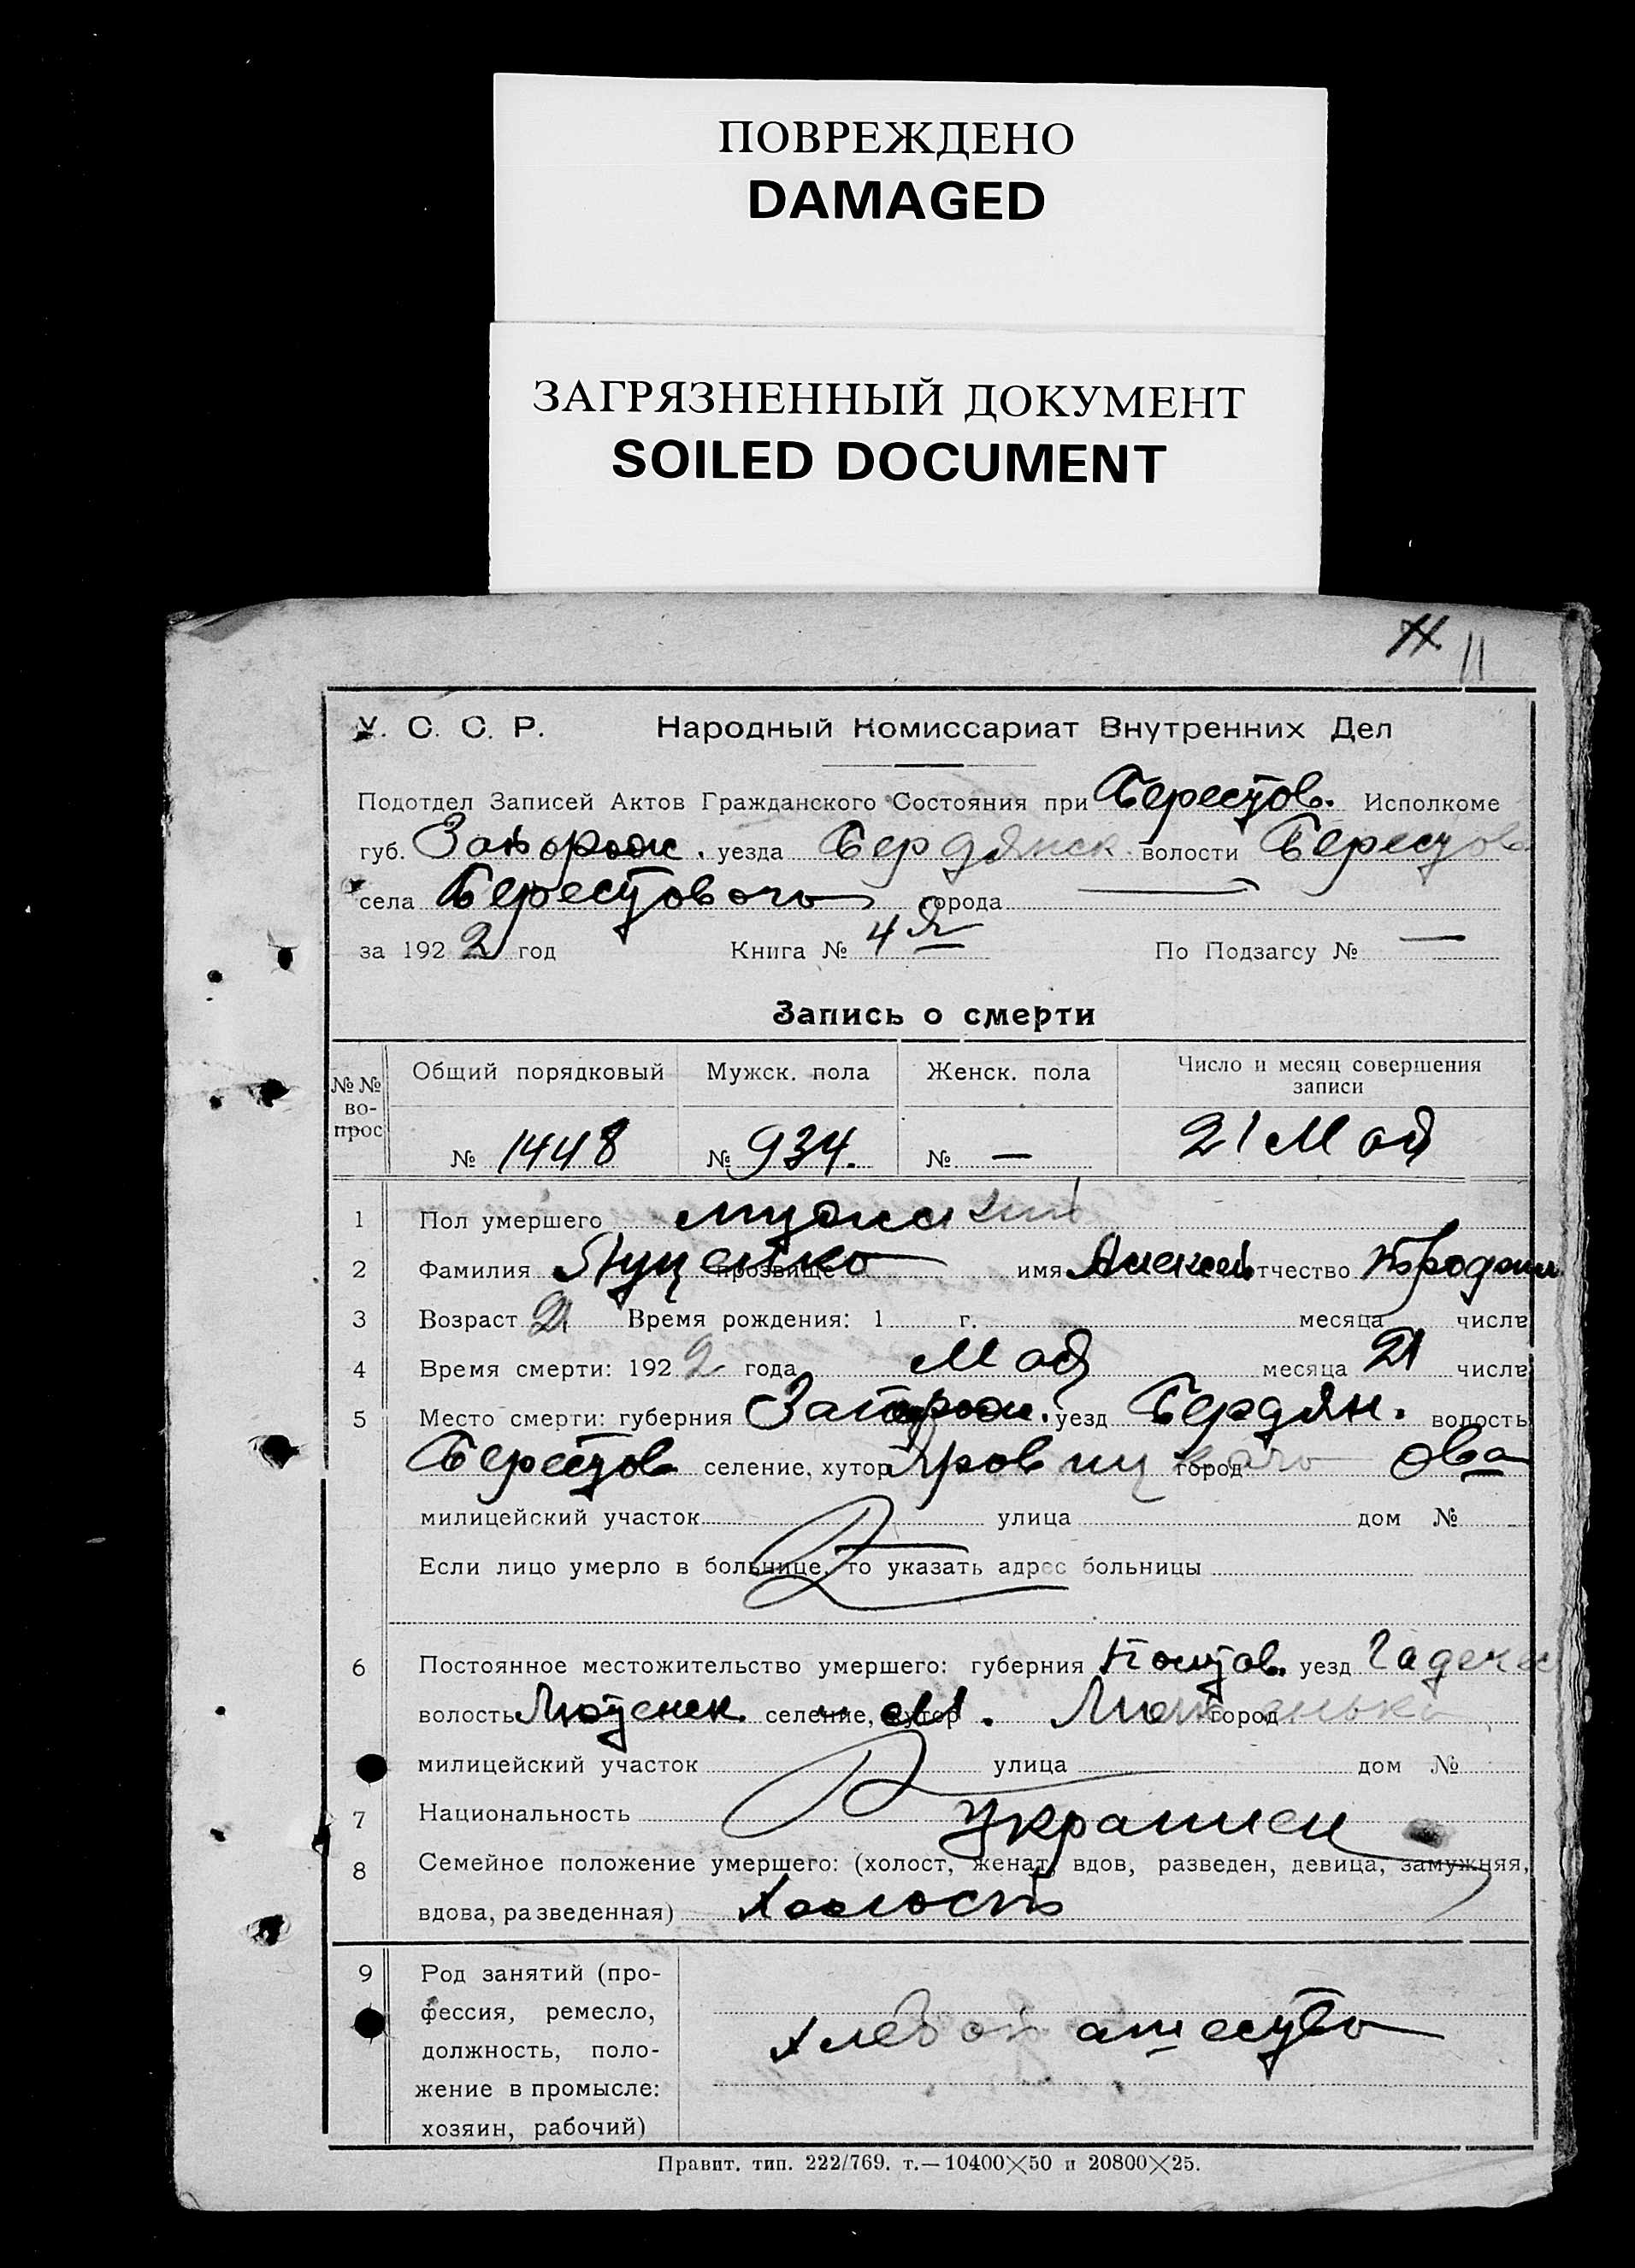 ПОВРЕЖДЕНО
DAMAGED
ЗАГРЯЗНЕННЫЙ ДОКУМЕНТ
SOILED DOCUMENT
11
У. С. С. Р. Народный Комиссариат Внутренних Дел
Подотдел Записей Актов Гражданского Состояния при Берестов. Исполкоме
губ. Запорож. уезда Бердянск. волости Берестов
села Берестового города —
за 1922 год Книга № 4я По Подзагсу № —
Запись о смерти
№№ вопрос Общий порядковый Мужск. пола Женск. пола Число и месяц совершения записи
№ 1448 № 934. № — 21 Мая
1 Пол умершего мужской
2 Фамилия прозвище имя Алексей отчество
3 Возраст 21 Время рождения: 1 г. месяца числа
4 Время смерти: 1922 года Мая месяца 21 числа
5 Место смерти: губерния Запорож. уезд Бердян. волость
Берестов селение, хутор город ова
милицейский участок улица дом №
Если лицо умерло в больнице, то указать адрес больницы
6 Постоянное местожительство умершего: губерния Полтов. уезд
волость Лютенск. селение, хутор город
милицейский участок улица дом №
7 Национальность Украинец
8 Семейное положение умершего: (холост, женат, вдов, разведен, девица, замужняя,
вдова, разведенная) Холость
9 Род занятий (про-
фессия, ремесло,
должность, поло-
жение в промысле:
хозяин, рабочий)
хлебопашество
Правит. тип. 222/769. т.—10400×50 и 20800×25.